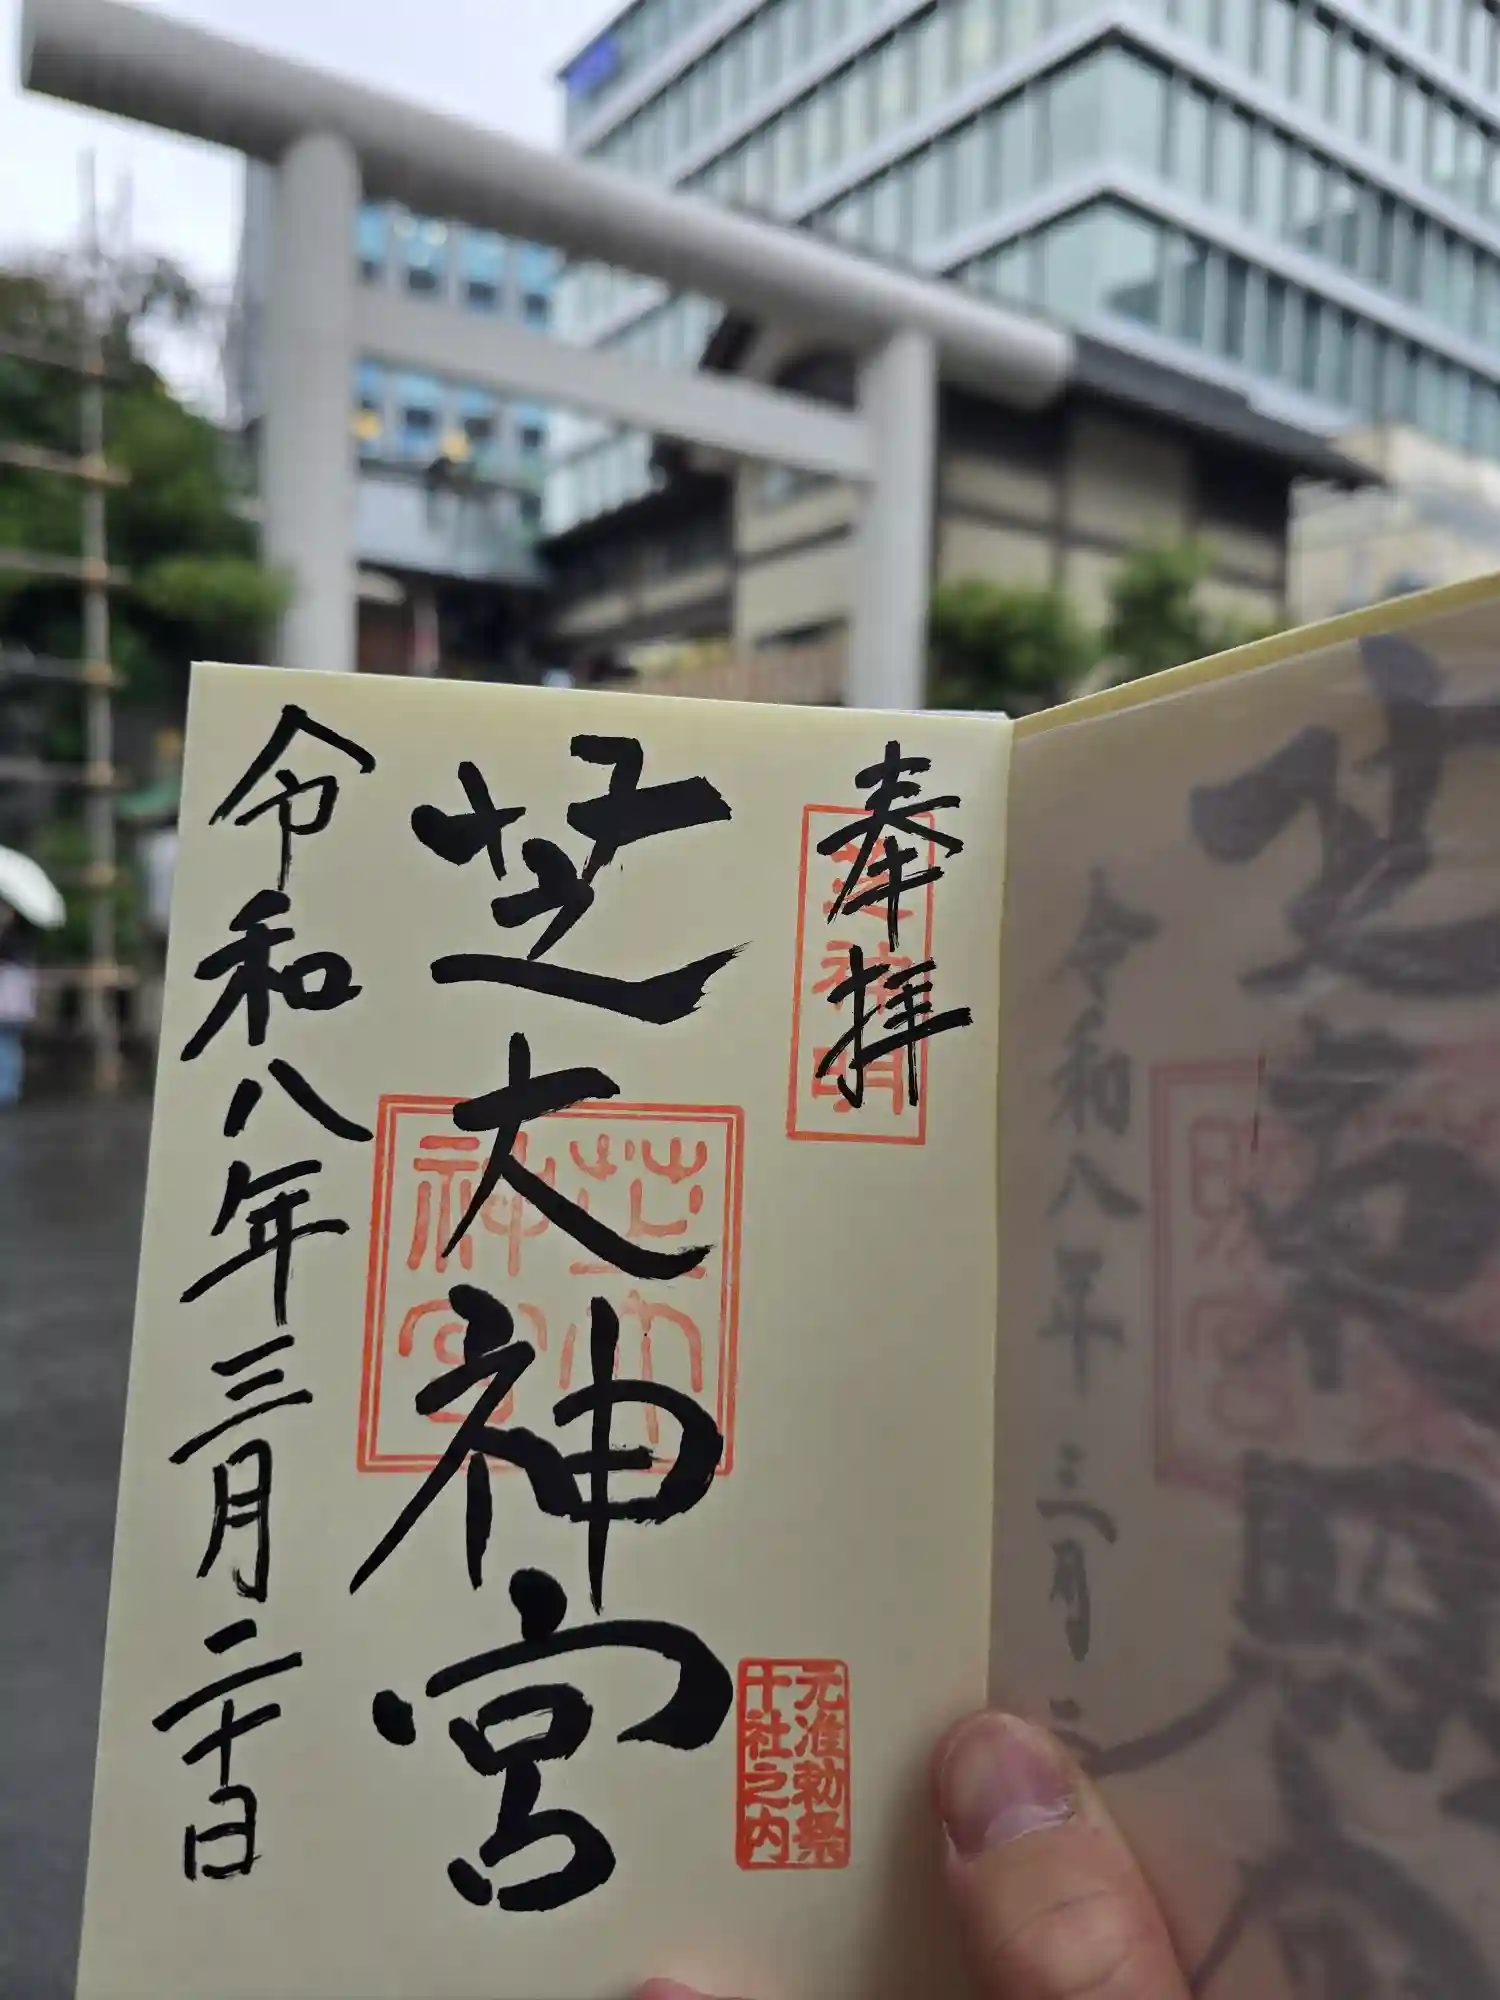 奉拝
芝神明
芝大神宮
芝大
神宮
元准勅祭
十社之内
令和八年三月二十日
令和八年三月二